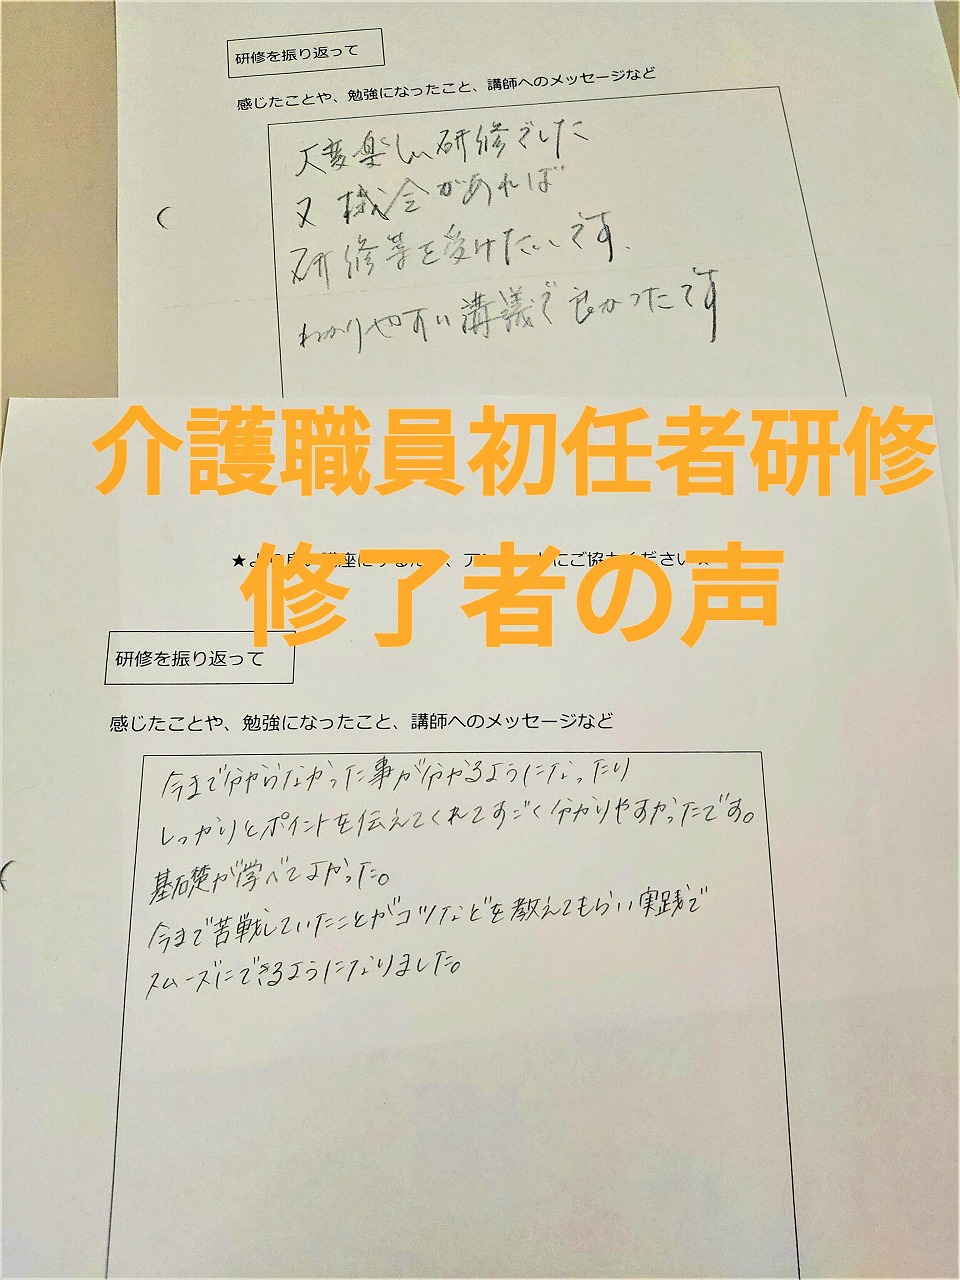 研修を振り返って
感じたことや、勉強になったこと、講師へのメッセージなど
大変楽しい研修でした
又機会があれば
研修等を受けたいです.
わかりやすい講義で良かったです
介護職員初任者研修
修了者の声
研修を振り返って
感じたことや、勉強になったこと、講師へのメッセージなど
今まで分からなかった事が分かるようになったり
しっかりとポイントを伝えてくれてすごく分かりやすかったです。
基礎が学べてよかった。
今まで苦戦していたことがコツなどを教えてもらい実践で
スムーズにできるようになりました。